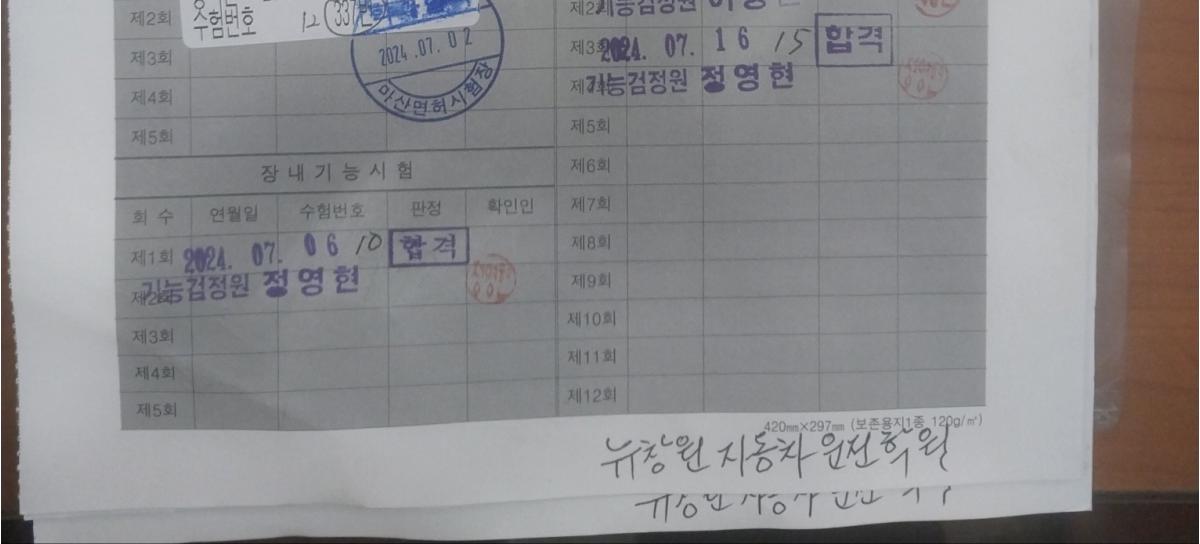 제2회
수험번호 12 337
2024.07.02
마산면허시험장
제3회
제4회
제5회
장내기능시험
회수 연월일 수험번호 판정 확인인
제1회 2024. 07. 06 10 합격
제2회 기능검정원 정영현
제3회
제4회
제5회
제2회 기능검정원
제3회 2024. 07. 16 15 합격
제4회 기능검정원 정영현
제5회
제6회
제7회
제8회
제9회
제10회
제11회
제12회
420㎜×297㎜ (보존용지1종 120g/㎡)
뉴창원 자동차 운전학원
뉴창원 자동차 운전학원